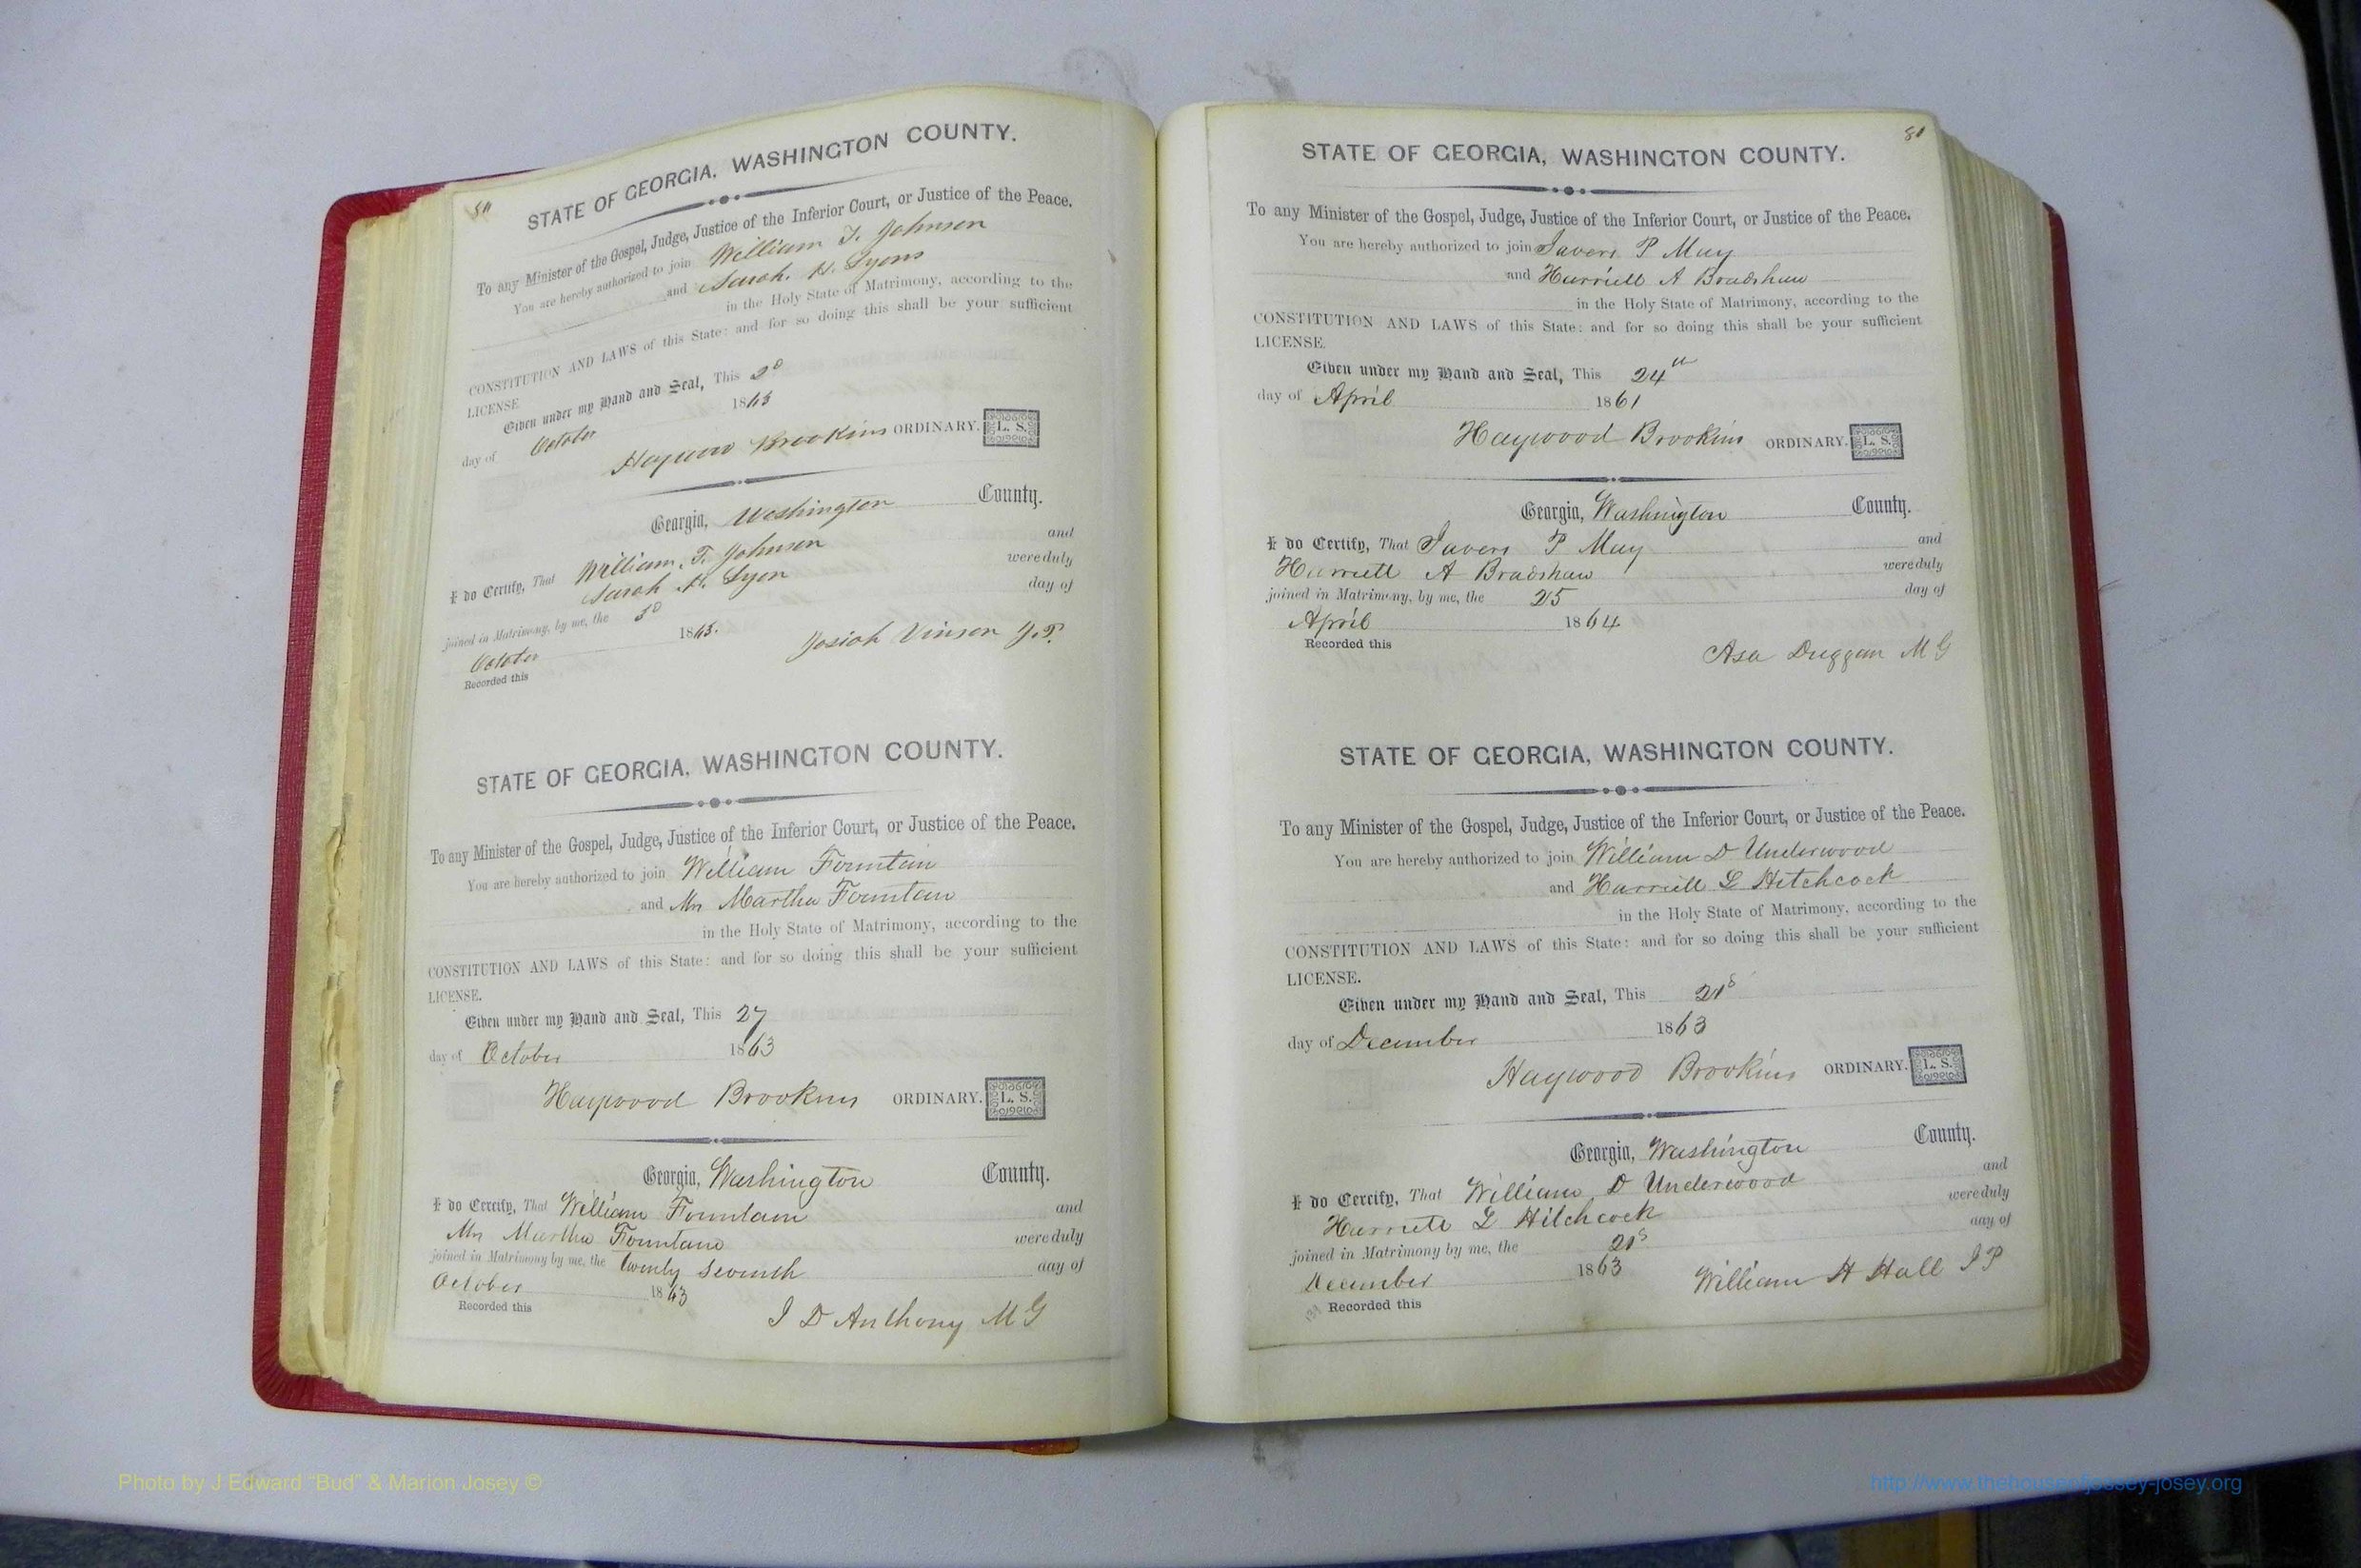 80
STATE OF GEORGIA, WASHINGTON COUNTY.
To any Minister of the Gospel, Judge, Justice of the Inferior Court, or Justice of the Peace.
You are hereby authorized to join William T. Johnson
and Sarah. H. Lyons
in the Holy State of Matrimony, according to the
CONSTITUTION AND LAWS of this State: and for so doing this shall be your sufficient
LICENSE
Given under my Hand and Seal, This 2d
day of October 1863
Haywood Brookins ORDINARY. L. S.
Georgia, Washington County.
I do Certify, That William. T. Johnson and
Sarah H. Lyon were duly
joined in Matrimony, by me, the 3d day of
October 1863.
Recorded this
Josiah Vinson J.P.
STATE OF GEORGIA, WASHINGTON COUNTY.
To any Minister of the Gospel, Judge, Justice of the Inferior Court, or Justice of the Peace.
You are hereby authorized to join William Fountain
and Mrs Martha Fountain
in the Holy State of Matrimony, according to the
CONSTITUTION AND LAWS of this State: and for so doing this shall be your sufficient
LICENSE.
Given under my Hand and Seal, This 27
day of October 1863
Haywood Brookins ORDINARY. L. S.
Georgia, Washington County.
I do Certify, That William Fountain and
Mrs Martha Fountain were duly
joined in Matrimony by me, the twenty seventh day of
October 1863
Recorded this
J D Anthony M G
81
STATE OF GEORGIA, WASHINGTON COUNTY.
To any Minister of the Gospel, Judge, Justice of the Inferior Court, or Justice of the Peace.
You are hereby authorized to join P May
and Harriett A Bradshaw
in the Holy State of Matrimony, according to the
CONSTITUTION AND LAWS of this State: and for so doing this shall be your sufficient
LICENSE.
Given under my Hand and Seal, This 24th
day of April 1861
Haywood Brookins ORDINARY. L. S.
Georgia, Washington County.
I do Certify, That P May and
Harriett A Bradshaw were duly
joined in Matrimony, by me, the 25 day of
April 1864
Recorded this
Asa Duggan M G
STATE OF GEORGIA, WASHINGTON COUNTY.
To any Minister of the Gospel, Judge, Justice of the Inferior Court, or Justice of the Peace.
You are hereby authorized to join William D Underwood
and Harriett L Hitchcock
in the Holy State of Matrimony, according to the
CONSTITUTION AND LAWS of this State: and for so doing this shall be your sufficient
LICENSE.
Given under my Hand and Seal, This 21s
day of December 1863
Haywood Brookins ORDINARY. L. S.
Georgia, Washington County.
I do Certify, That William D Underwood and
Harriett L Hitchcock were duly
joined in Matrimony by me, the 21s day of
December 1863
William H Hall J P
Recorded this
Photo by J Edward "Bud" & Marion Josey ©